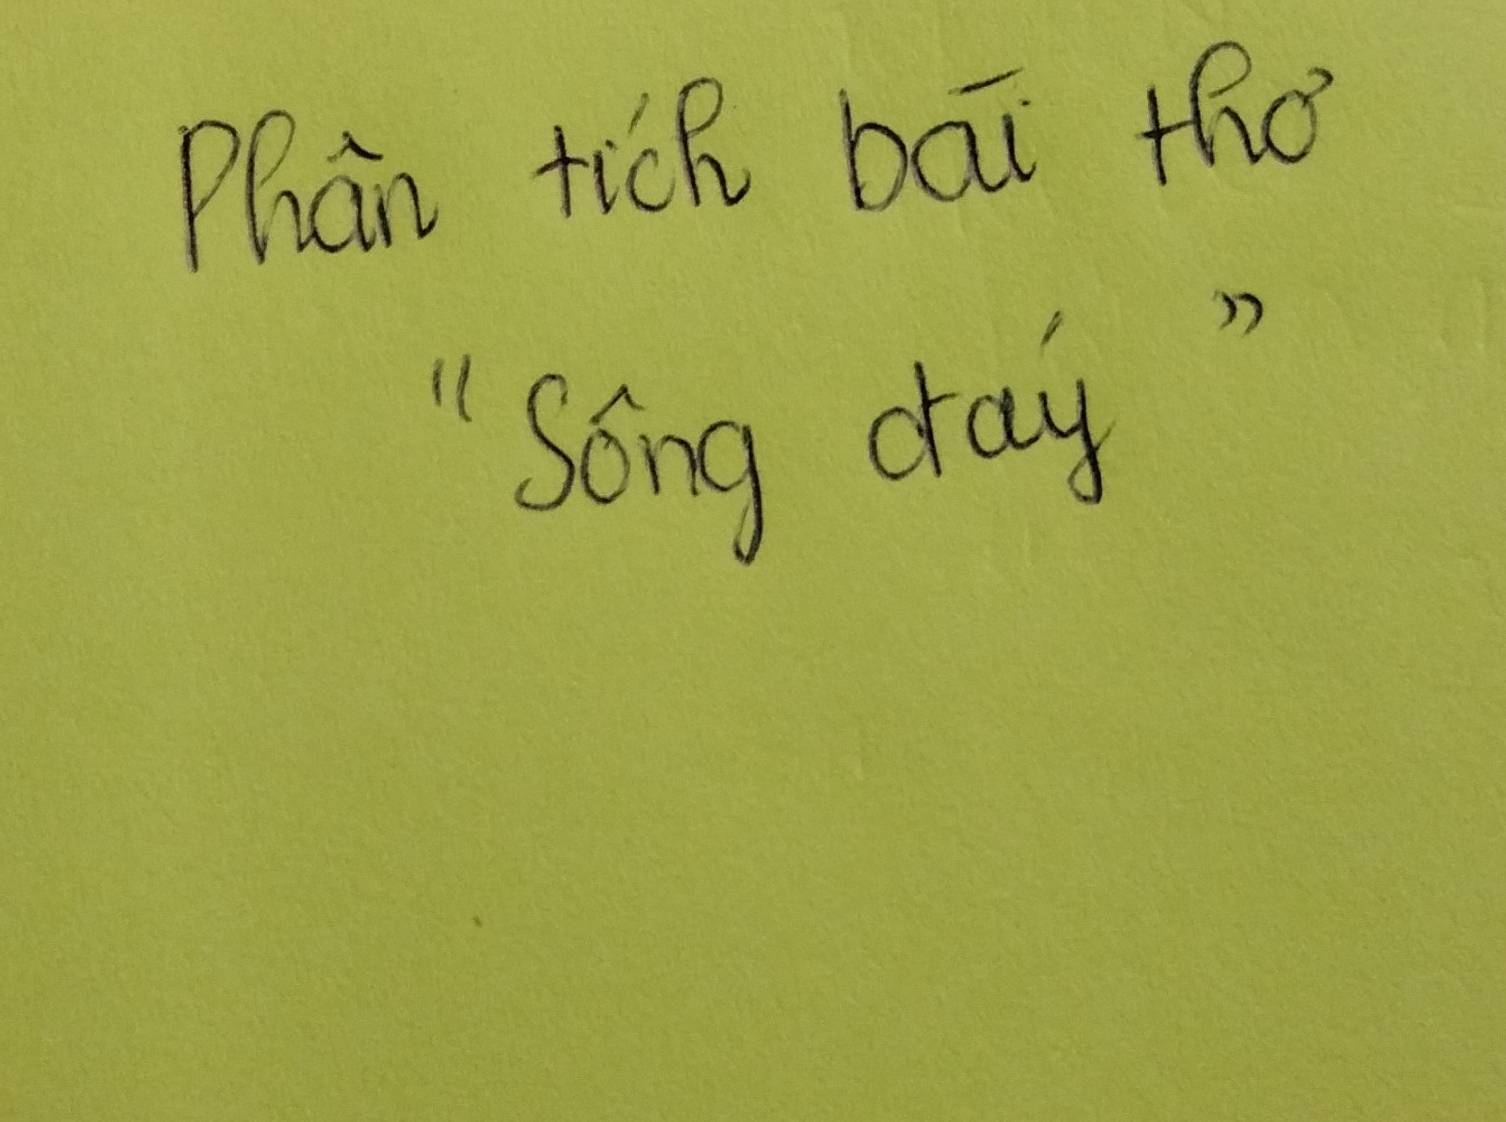 Phân tích bài thơ
"Sông đáy"